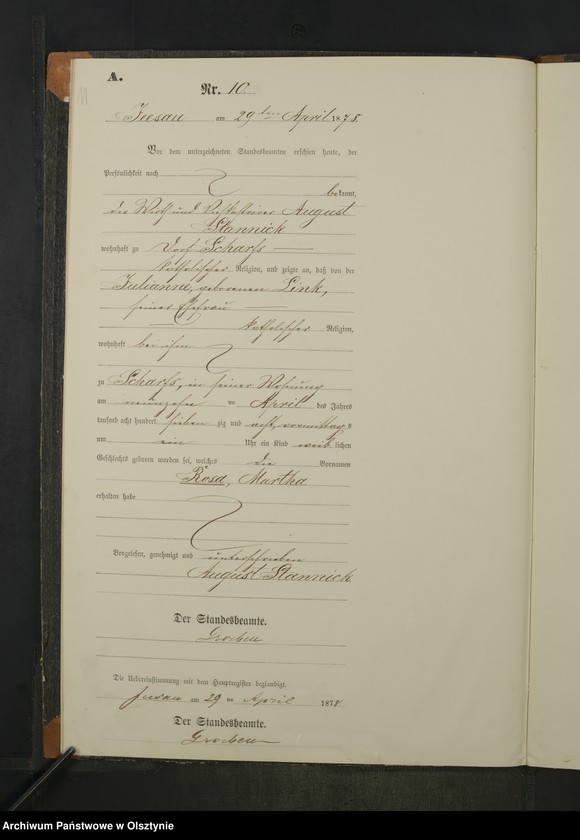 A.
Nr. 10.
Jeesau am 29ten April 1878.
Vor dem unterzeichneten Standesbeamten erschien heute, der
Persönlichkeit nach
bekannt,
der Wirth und August
Stannick
wohnhaft zu Dorf Scharfs
katholischer Religion, und zeigte an, daß von der
Julianne, geborenen Link,
seiner Ehefrau
katholischer Religion,
wohnhaft bei ihm
zu Scharfs, in seiner Wohnung
am neunzehn ten April des Jahres
tausend acht hundert sieben zig und acht, vormittags
um ein Uhr ein Kind weiblichen
Geschlechts geboren worden sei, welches die Vornamen
Rosa, Martha
erhalten habe
Vorgelesen, genehmigt und unterschrieben
August Stannick
Der Standesbeamte.
Grochen
Die Uebereinstimmung mit dem Hauptregister beglaubigt.
Jeesau am 29 ten April 1878
Der Standesbeamte.
Grochen
Archiwum Państwowe w Olsztynie